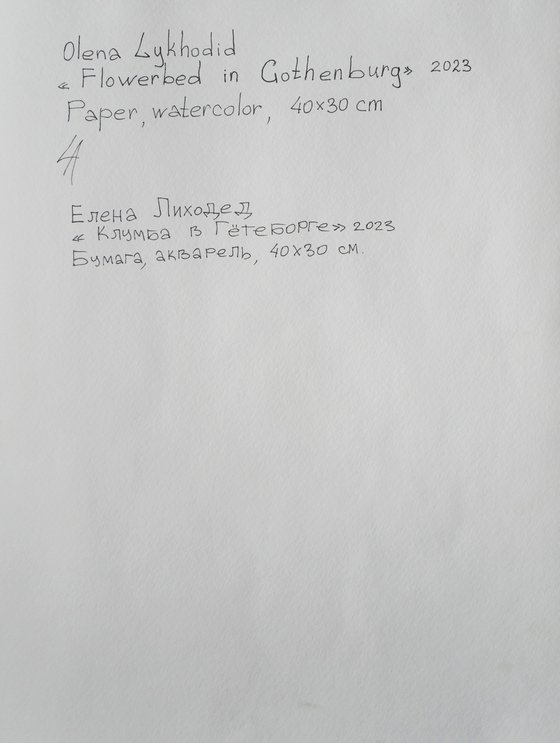 Olena Lykhodid
« Flowerbed in Gothenburg» 2023
Paper, watercolor, 40x30 cm
Елена Лиходед
« Клумба в Гётеборге» 2023
Бумага, акварель, 40x30 см.